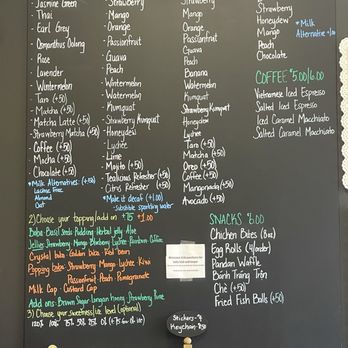 Jasmine Green
Thai
Earl Grey
Osmanthus Oolong
Rose
Lavender
Wintermelon
Taro (+50)
Matcha (+50)
Matcha Latte (+50)
Strawberry Matcha (+50)
Coffee (+50)
Mocha (+50)
Chocolate (+50)
*Milk Alternatives: (+50)
Lactose Free
Almond
Oat
Strawberry
Mango
Orange
Passionfruit
Guava
Peach
Watermelon
Wintermelon
Kumquat
Strawberry Kumquat
Honeydew
Lychee
Lime
Mojito (+50)
Tealicious Refresher (+50)
Citrus Refresher (+50)
*Make it decaf (+1.00)
- Substitute sparkling water
Strawberry
Mango
Orange
Passionfruit
Guava
Peach
Banana
Watermelon
Kumquat
Strawberry Kumquat
Honeydew
Lychee
Taro (+50)
Matcha (+50)
Oreo (+50)
Coffee (+50)
Mangonada (+50)
Avocado (+50)
Strawberry
Honeydew
Mango
Peach
Chocolate
*Milk
Alternative +
COFFEE $5.00/6.00
Vietnamese Iced Espresso
Salted Iced Espresso
Iced Caramel Macchiato
Salted Caramel Macchiato
2) Choose your topping/add on +.75 +1.00
Boba Basil Seeds Pudding Herbal jelly Aloe
Jellies: Strawberry Mango Blueberry Lychee Rainbow Coffee
Crystal boba Golden boba Red bean
Popping boba: Strawberry Mango Lychee Kiwi
Passionfruit Peach Pomegranate
Milk Cap Custard Cap
Add ons: Brown Sugar Longan honey Strawberry Puree
3) Choose your sweetness/ice level (optional)
120% 100% 75% 50% 25% 0%
SNACKS $5.00
Chicken Bites (8oz)
Egg Rolls (4/order)
Pandan Waffle
Bánh Tráng Trộn
Chè (+50)
Fried Fish Balls (+50)
Stickers-
Keychain-